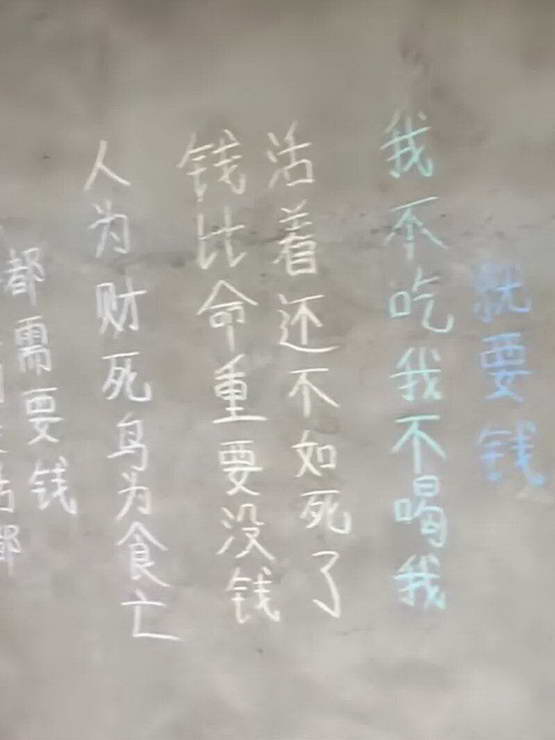 都需要钱
人为财死鸟为食亡
钱比命重要没钱
活着还不如死了
我不吃我不喝我
就要钱